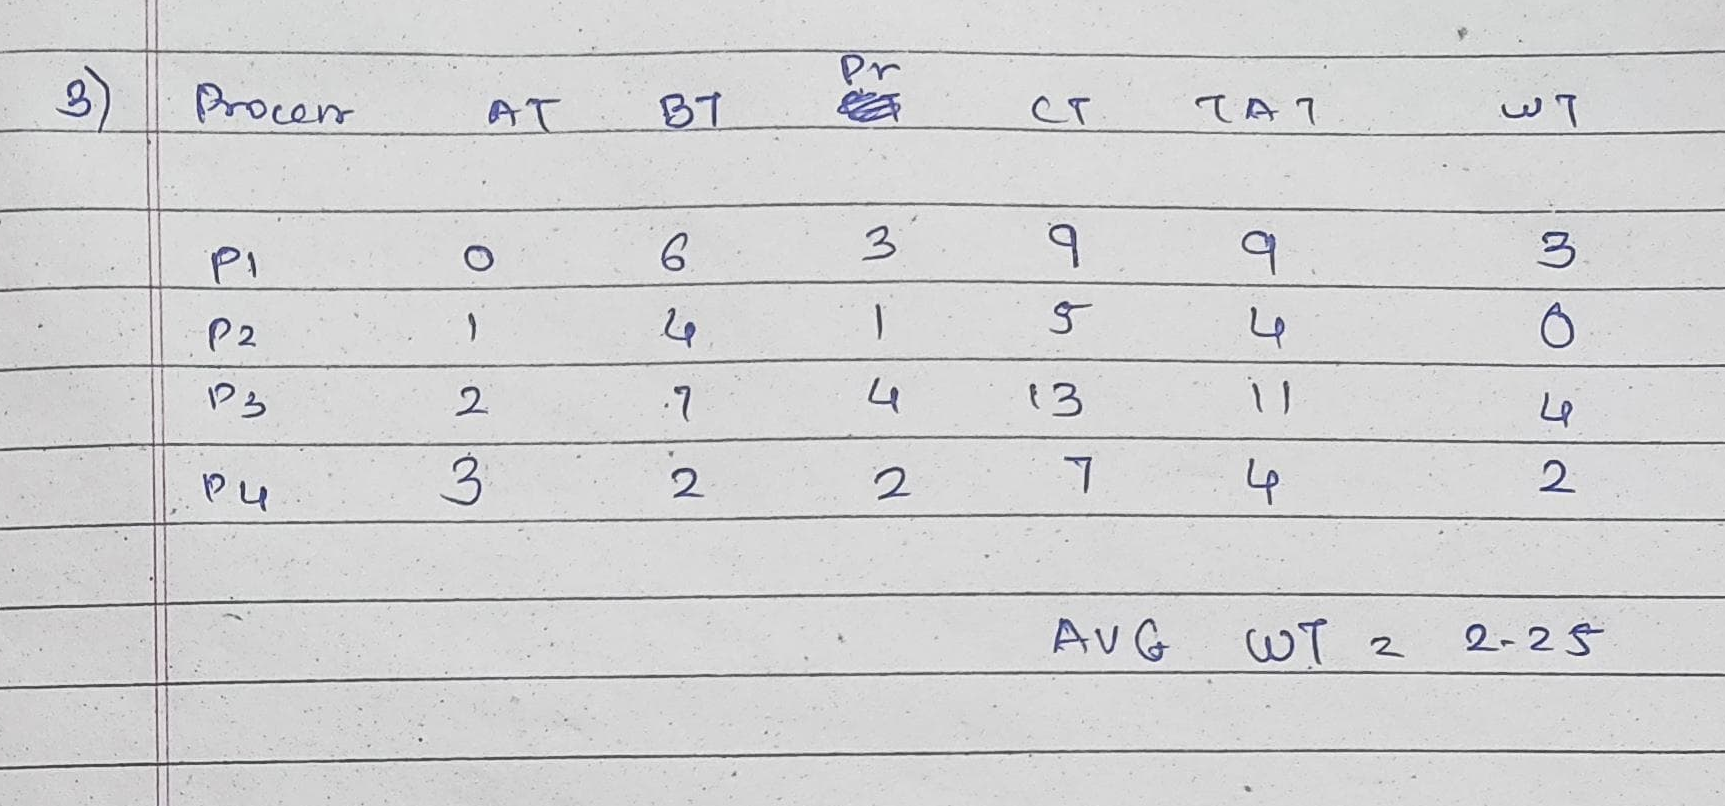 3) Process AT BT Pr CT TAT WT
P1 0 6 3 9 9 3
P2 1 4 1 5 4 0
P3 2 7 4 13 11 4
P4 3 2 2 7 4 2
AVG WT = 2.25